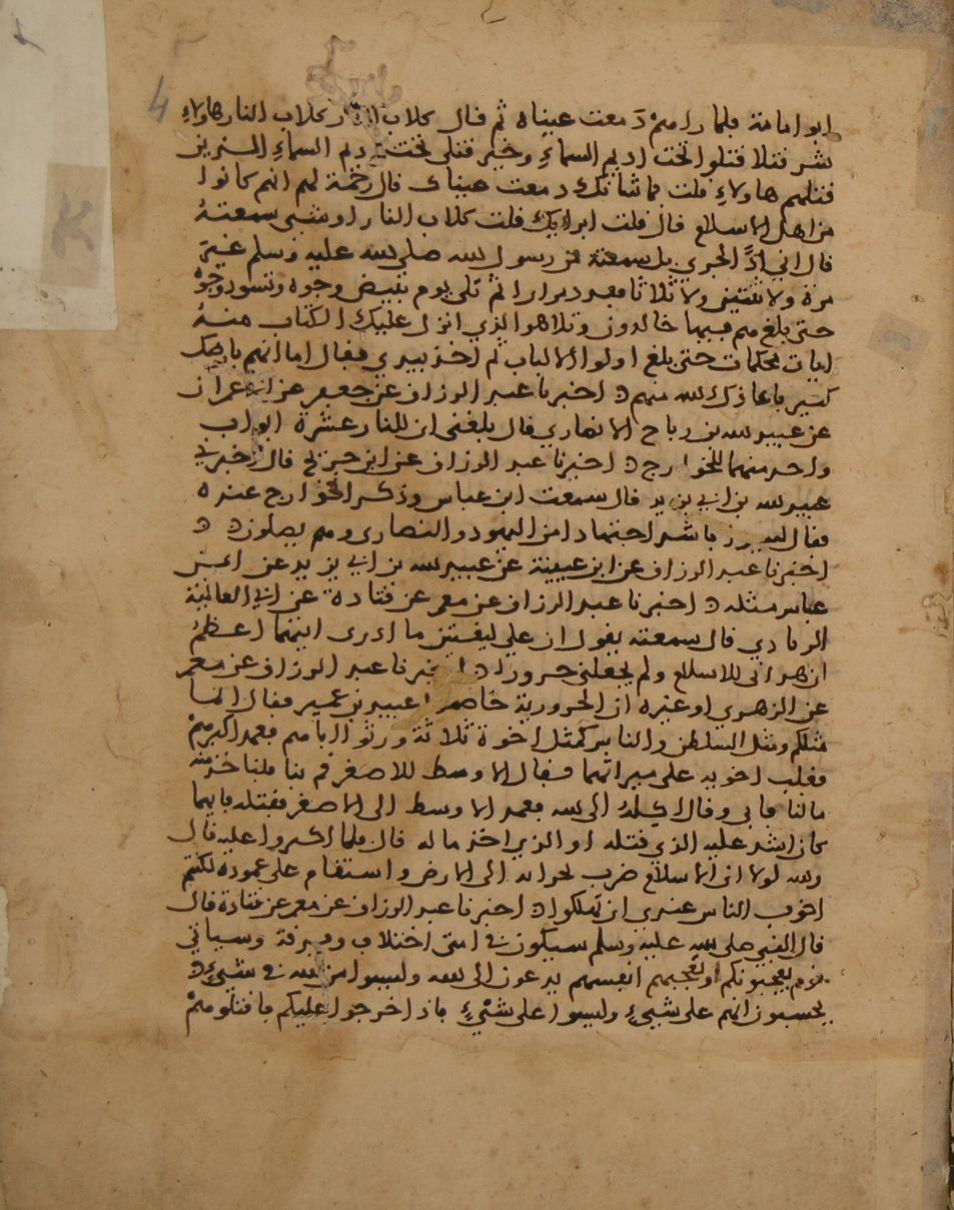 4
ابو امامة فلما راهم دمعت عيناه ثم قال كلاب النار كلاب النار هاولاء
شر قتلا قتلوا تحت اديم السماء وخير قتلى تحت اديم السماء الذين
قتلهم هاولاء قلت فما شانك دمعت عيناك قال رحمة لهم انهم كانوا
من اهل الاسلام قال قلت ابرايك قلت كلاب النار او شي سمعته
قال اني اذا لجري بل سمعته من رسول الله صلى الله عليه وسلم غير
مرة ولا ثنتين ولا ثلاثا فعدد مرارا ثم تلى يوم تبيض وجوه وتسود وجوه
حتى بلغ هم فيها خالدون وتلا هو الذي انزل عليك الكتاب منه
ايات محكمات حتى بلغ اولوا الالباب ثم اخذ بيدي فقال اما انهم بارضك
كثير فاعاذك الله منهم اخبرنا عبد الرزاق عن جعفر عن ابي عمران
عن عبد الله بن رباح الانصاري قال بلغني ان للنار عشرة ابواب
واحد منها للخوارج اخبرنا عبد الرزاق عن ابن جريج قال اخبرني
عبيد الله بن ابي يزيد قال سمعت ابن عباس وذكر الخوارج عنده
فقال ليسوا باشد اجتهادا من اليهود والنصارى وهم يصلون
اخبرنا عبد الرزاق عن ابن عيينة عن عبيد الله بن ابي يزيد عن ابن
عباس مثله اخبرنا عبد الرزاق عن معمر عن قتادة عن ابي العالية
الرياحي قال سمعته يقول ان علي لنعمتين ما ادري ايتهما اعظم
ان هداني للاسلام ولم يجعلني حروريا اخبرنا عبد الرزاق عن معمر
عن الزهري او غيره ان الحرورية خاصموا عبيد بن عمير فقال انما
مثلكم ومثل السلطان والناس كمثل اخوة ثلاثة ورثوا اباهم فعمد اكبرهم
فغلب اخويه على ميراثهما فقال الاوسط للاصغر قم بنا فلناخذ منه
مالنا فابى وقال اكله الى الله فعمد الاوسط الى الاصغر فقتله فايهما
كان اشد عليه الذي قتله او الذي اخذ ماله قال فلما اكثروا عليه قال
والله لولا ان الاسلام ضرب بجرانه الى الارض واستقام على عموده لكنتم
اخوف الناس عندي ان تهلكوا اخبرنا عبد الرزاق عن معمر عن قتادة قال
قال النبي صلى الله عليه وسلم سيكون في امتي اختلاف وفرقة وسياتي
قوم يعجبونكم او تعجبهم انفسهم يدعون الى الله وليسوا من الله في شيء
يحسبون انهم على شيء وليسوا على شيء فاذا خرجوا عليكم فاقتلوهم